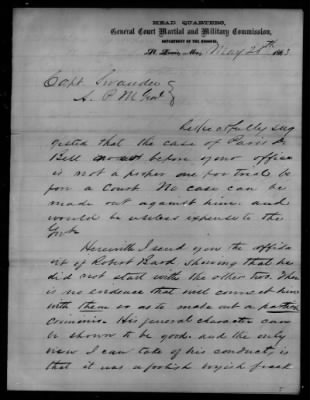 HEAD QUARTERS,
General Court Martial and Military Commission,
DEPARTMENT OF THE MISSOURI,
St. Louis, Mo., May 1863
Capt
A. P. M. Genl
Respectfully sug
gested that the case of
Bell now before your office
is not a proper one for trial be
fore a Court No case can be
made out against him and
would be useless expense to the
Govt.
Herewith I send you the affida
vit of Robert Bard showing that he
did not start with the other two. There
is no evidence that will connect him
with them so as to make out a
criminis. His general character can
be shown to be good and the only
view I can take of his conduct, is
that it was a foolish boyish freak